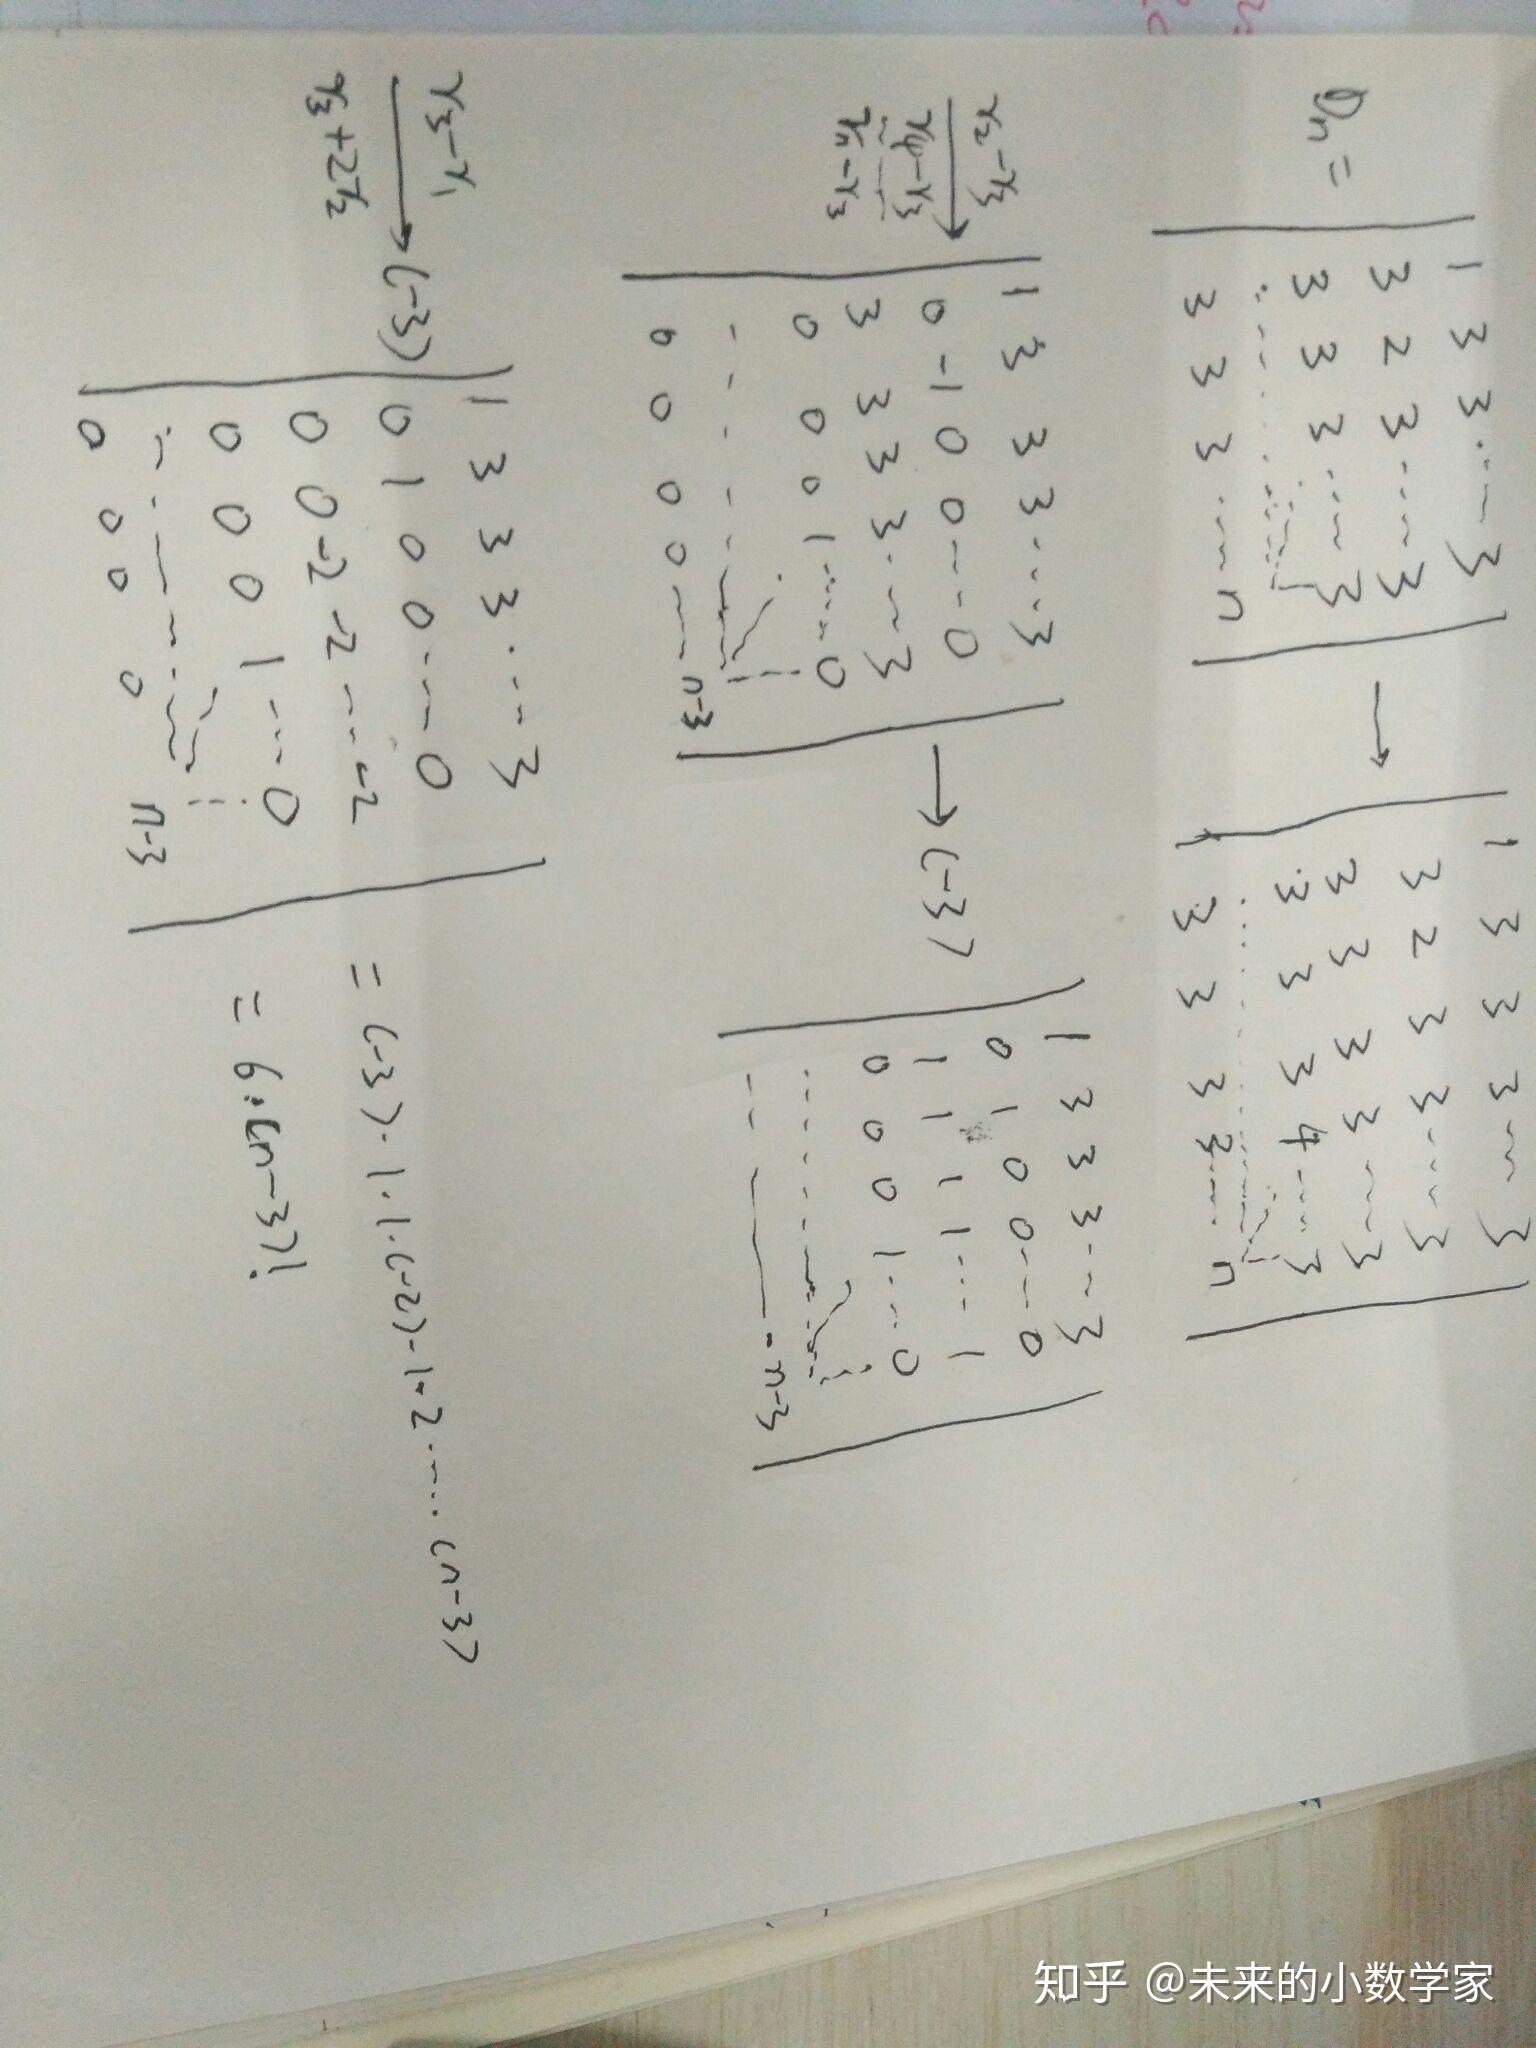 Dn =
1 3 3 ... 3
3 2 3 ... 3
3 3 3 ... 3
3 3 3 ... n
→
1 3 3 3 ... 3
3 2 3 3 ... 3
3 3 3 3 ... 3
3 3 3 4 ... 3
3 3 3 3 ... n
r2-r3
r4-r3
...
rn-r3
→
1 3 3 3 ... 3
0 -1 0 0 ... 0
3 3 3 3 ... 3
0 0 0 1 ... 0
0 0 0 0 ... n-3
→ (-3)
1 3 3 3 ... 3
0 1 0 0 ... 0
1 1 1 1 ... 1
0 0 0 1 ... 0
... n-3
r3-r1
r3+2r2
→ (-3)
1 3 3 3 ... 3
0 1 0 0 ... 0
0 0 -2 -2 ... -2
0 0 0 1 ... 0
0 0 0 0 n-3
= (-3)·1·1·(-2)·1·2·...·(n-3)
= 6·(n-3)!
知乎 @未来的小数学家